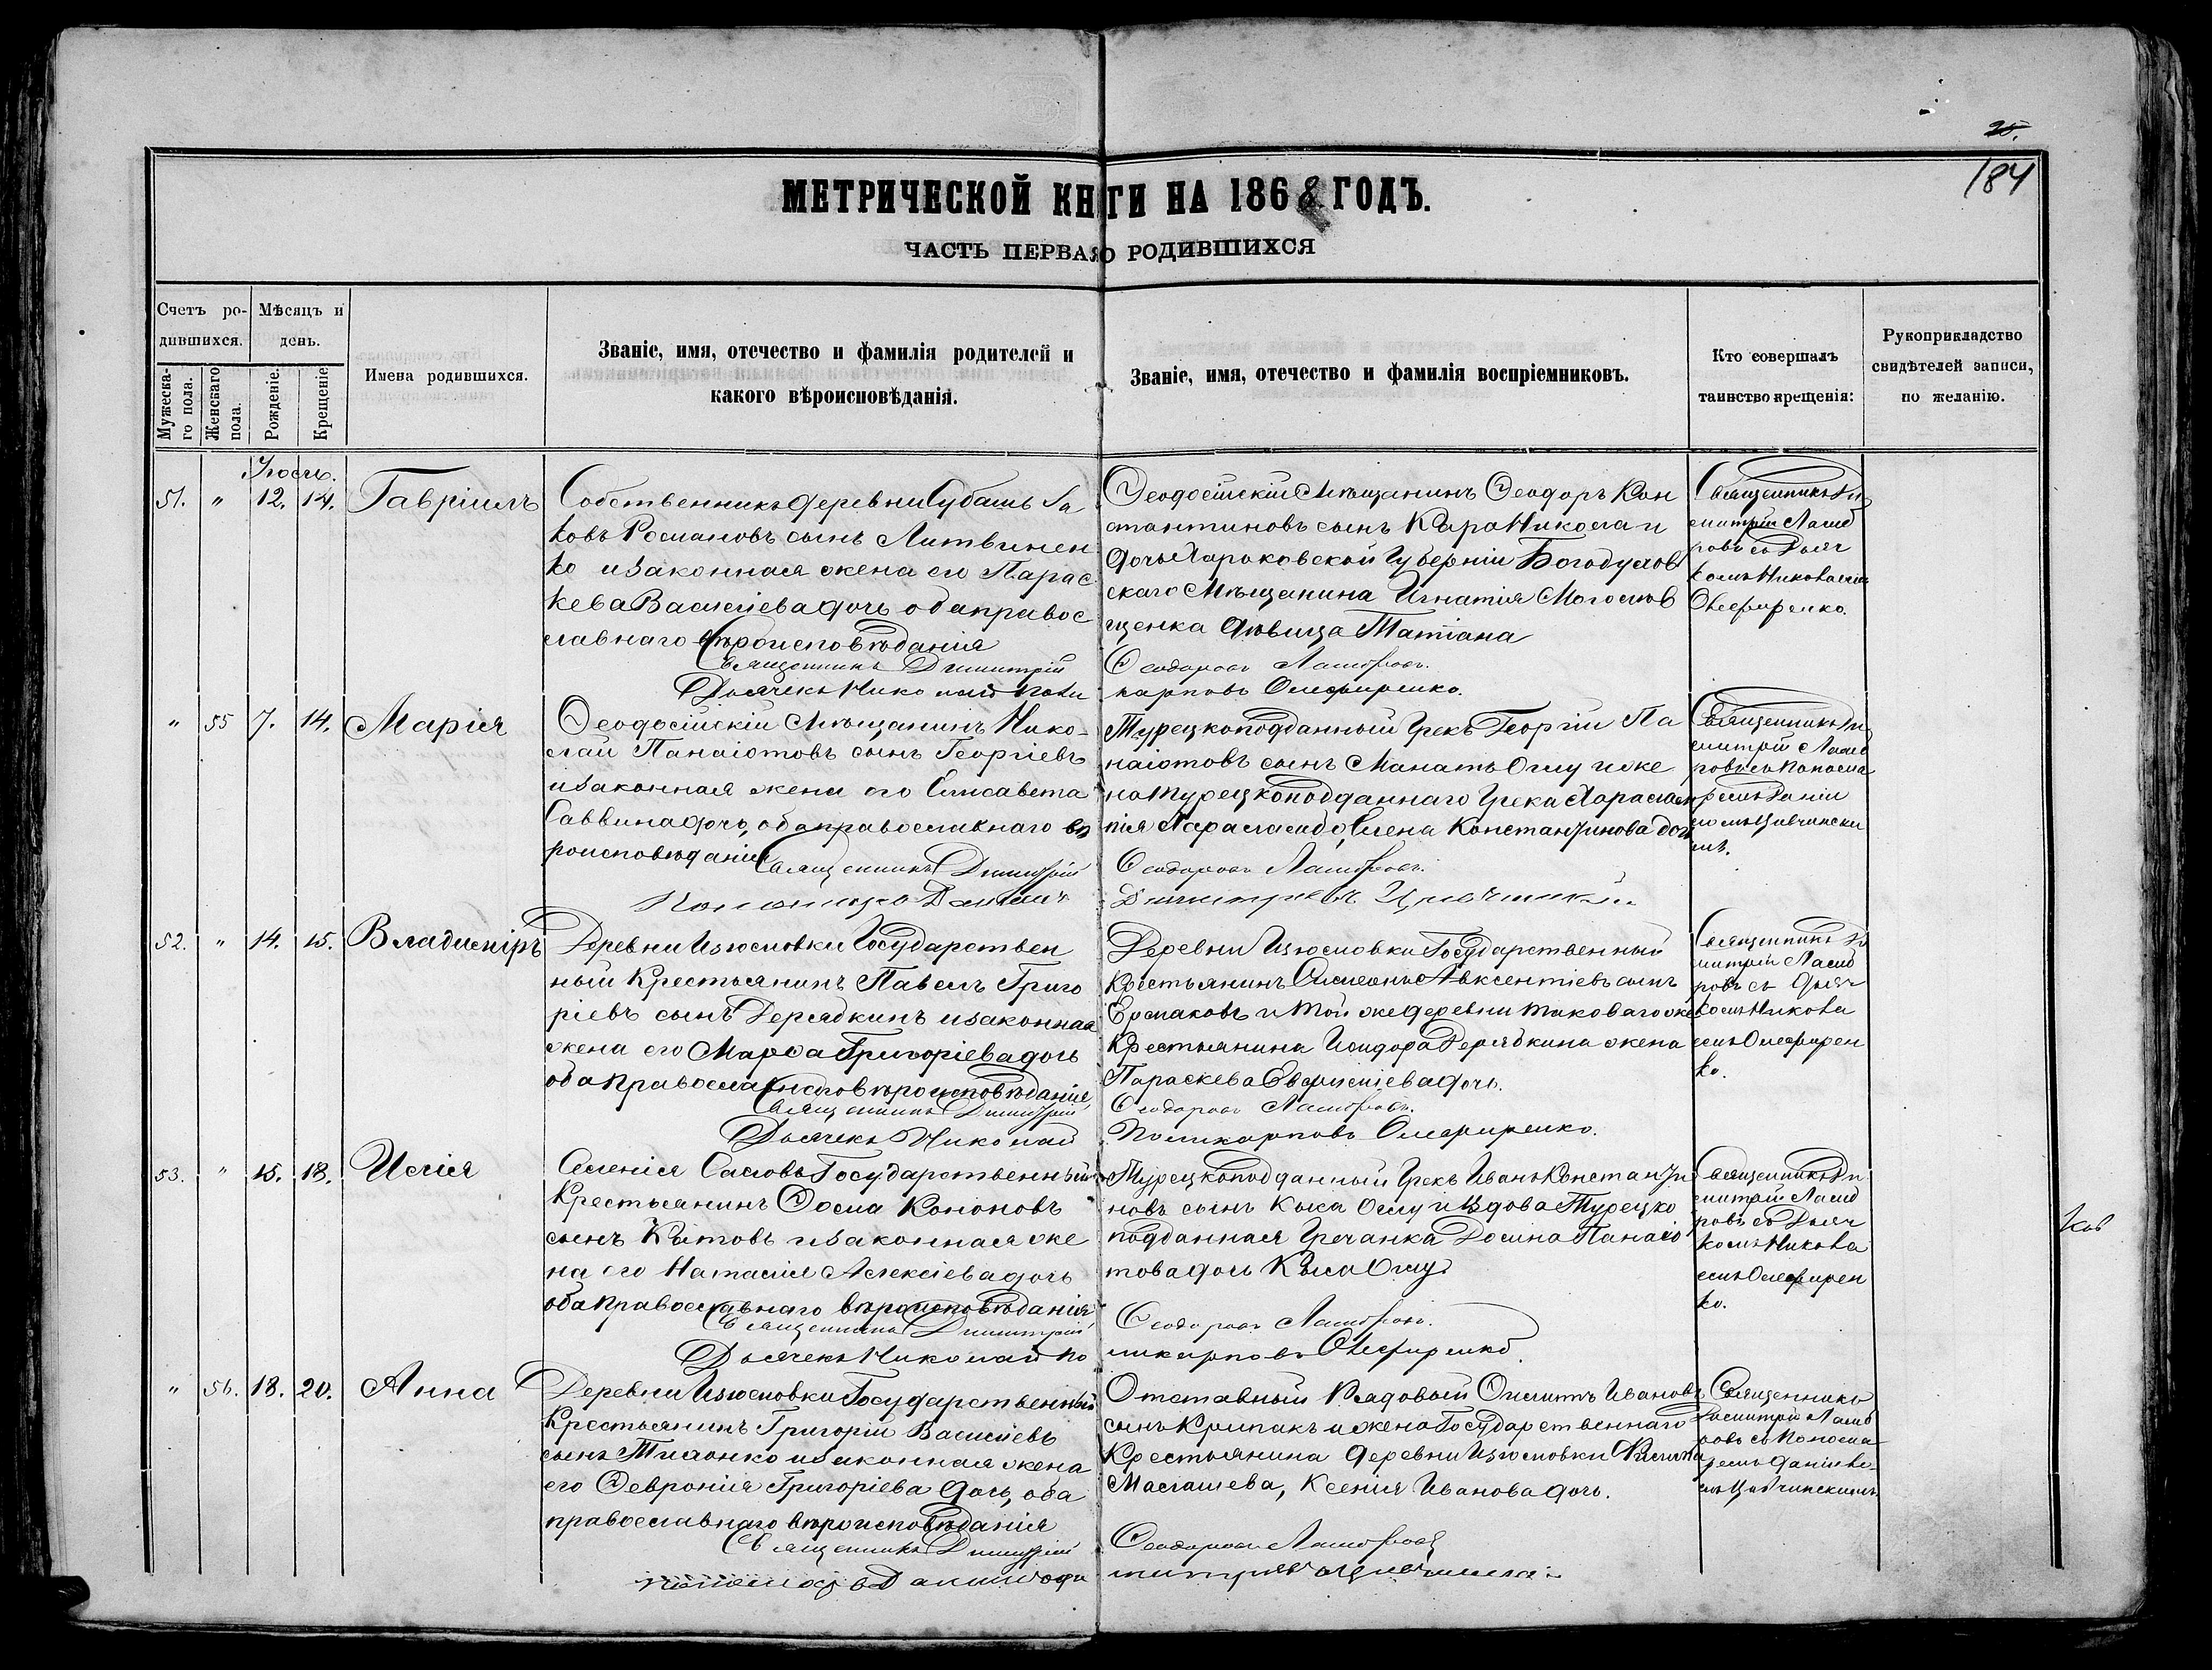 25.
184
МЕТРИЧЕСКОЙ КНИГИ НА 1868 ГОДЪ.
ЧАСТЬ ПЕРВАЯ О РОДИВШИХСЯ
Счетъ ро-
дившихся.
Мужеска-
го пола.
Женскаго
пола.
Мѣсяцъ и
день.
Рожденіе.
Крещеніе
Имена родившихся.
Званіе, имя, отечество и фамилія родителей и
какого вѣроисповѣданія.
Званіе, имя, отечество и фамилія воспріемниковъ.
Кто совершалъ
таинство крещенія:
Рукоприкладство
свидѣтелей записи,
по желанію.
51. " 12. 14. Гавріилъ
Собственникъ деревни Субашъ Іа
ковъ Романовъ сынъ Литвинен
ко и законная жена его Парас
кева Василіева дочь оба правос
лавнаго вѣроисповѣданія
Священникъ Димитрій
Дьячекъ Николай Поли
Ѳеодосійскій Мѣщанинъ Ѳеодоръ Кон
стантиновъ сынъ Кара Николаи
дочь Харьковской Губерніи Богодухов
скаго Мѣщанина Игнатія
щенка дѣвица Татіана
Ѳеодоровъ
карповъ Олефиренко.
Священникъ Ди
митрій
ровъ съ Дьяч
комъ Николаемъ
Олефиренко.
" 55 7. 14. Марія
Ѳеодосійскій Мѣщанинъ Нико-
лай Панаіотовъ сынъ Георгіевъ
и законная жена его Елисавета
Саввина дочь, оба православнаго вѣ
роисповѣданія
Священникъ Димитрій
Пономарь Даніилъ
Турецкоподданный Грекъ Георгій Па
наіотовъ сынъ Манатъ Оглу и же
на Турецкоподданнаго Грека Харалам
пія Елена Константинова дочь
Ѳеодоровъ
Димитріевъ
Священникъ Ди
митрій
ровъ съ Понома
ремъ Даніи
ломъ
мъ.
52. " 14. 15. Владиміръ
Деревни Изюмовки Государствен
ный Крестьянинъ Павелъ Григо
ріевъ сынъ Дерябкинъ и законная
жена его Марѳа Григоріева дочь
оба православнаго вѣроисповѣданія,
Священникъ Димитрій
Дьячекъ Николай
Деревни Изюмовки Государственный
Крестьянинъ Симеонъ Авксентіевъ сынъ
Ермаковъ и той же деревни таковаго же
Крестьянина Исидора Дерябкина жена
Параскева Евфиміева дочь.
Ѳеодоровъ
Поликарповъ Олефиренко.
Священникъ Ди
митрій
ровъ съ Дьяч
комъ Никола
емъ Олефирен
ко.
53. " 15. 18. Илія
Селенія Саловъ Государственный
Крестьянинъ Ѳома Кононовъ
сынъ Китовъ и законная же
на его Наталія Алексіева дочь
оба православнаго вѣроисповѣданія
Священникъ Димитрій
Дьячекъ Николай По
Турецкоподданный Грекъ Иванъ Константи
новъ сынъ Оглу и вдова Турецко
подданная Гречанка Домна Панаіо
това дочь Оглу.
Ѳеодоровъ
ликарповъ Олефиренко.
Священникъ Ди
митрій
ровъ съ Дьяч
комъ Никола
емъ Олефирен
ко.
" 56. 18. 20. Анна
Деревни Изюмовки Государственный
Крестьянинъ Григорій Василіевъ
сынъ Тихонко и законная жена
его Ѳевронія Григоріева дочь, оба
православнаго вѣроисповѣданія
Священникъ Димитрій
Пономарь Даніилъ
Отставный Рядовой Ивановъ
сынъ Крипакъ и жена Государственнаго
Крестьянина деревни Изюмовки Филиппа
Маслашева, Ксенія Иванова дочь.
Ѳеодоровъ
Священникъ
Димитрій
ровъ съ Понома
ремъ Даніи